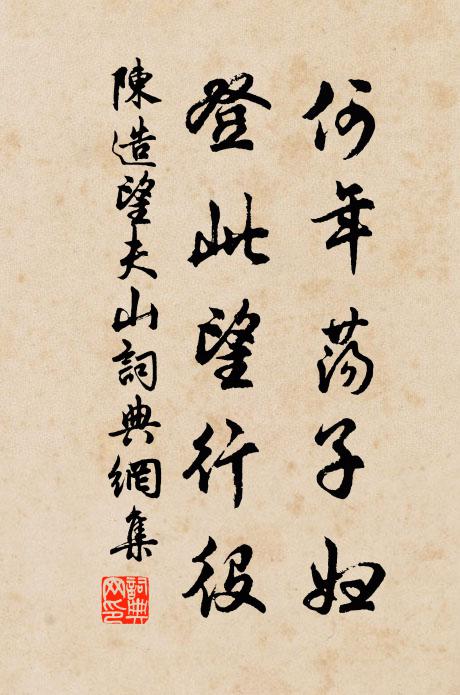 何年荡子妇
登此望行役
陳造望夫山詞典網集
詞典網印